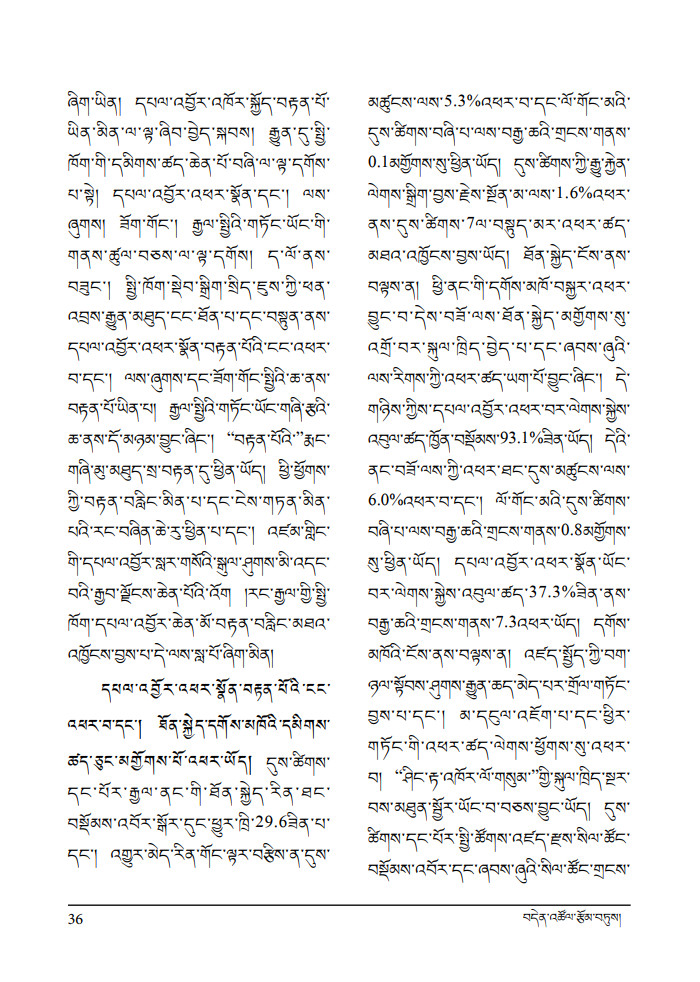 ཞིག་ཡིན། དཔལ་འབྱོར་འཁོར་སྐྱོད་བརྟན་པོ་
ཡིན་མིན་ལ་ལྟ་ཞིབ་བྱེད་སྐབས། རྒྱུན་དུ་སྤྱི་
ཁོག་གི་དམིགས་ཚད་ཆེན་པོ་བཞི་ལ་ལྟ་དགོས་
པ་སྟེ། དཔལ་འབྱོར་འཕར་སྣོན་དང་། ལས་
ཞུགས། ཟོག་གོང་། རྒྱལ་སྤྱིའི་གཏོང་ཡོང་གི་
གནས་ཚུལ་བཅས་ལ་ལྟ་དགོས། ད་ལོ་ནས་
བཟུང་། སྤྱི་ཁོག་སྡེབ་སྒྲིག་སྲིད་ཇུས་ཀྱི་ཕན་
འབྲས་རྒྱུན་མཐུད་ངང་ཐོན་པ་དང་བསྟུན་ནས་
དཔལ་འབྱོར་འཕར་སྣོན་བརྟན་པོའི་ངང་འཕར་
བ་དང་། ལས་ཞུགས་དང་ཟོག་གོང་སྤྱིའི་ཆ་ནས་
བརྟན་པོ་ཡིན་པ། རྒྱལ་སྤྱིའི་གཏོང་ཡོང་གཞི་རྩའི་
ཆ་ནས་དོ་མཉམ་བྱུང་ཞིང་། “བརྟན་པོའི་”རྨང་
གཞི་མུ་མཐུད་སྲ་བརྟན་དུ་ཕྱིན་ཡོད། ཕྱི་ཕྱོགས་
ཀྱི་བརྟན་བརླིང་མིན་པ་དང་ངེས་གཏན་མིན་
པའི་རང་བཞིན་ཆེ་རུ་ཕྱིན་པ་དང་། འཛམ་གླིང་
གི་དཔལ་འབྱོར་སླར་གསོའི་སྐུལ་ཤུགས་མི་འདང་
བའི་རྒྱབ་ལྗོངས་ཆེན་པོའི་འོག །རང་རྒྱལ་གྱི་སྤྱི་
ཁོག་དཔལ་འབྱོར་ཆེན་མོ་བརྟན་བརླིང་མཐའ་
འཁྱོངས་བྱས་པ་དེ་ལས་སླ་པོ་ཞིག་མིན།
དཔལ་འབྱོར་འཕར་སྣོན་བརྟན་པོའི་ངང་
འཕར་བ་དང་། ཐོན་སྐྱེད་དགོས་མཁོའི་དམིགས་
ཚད་ཅུང་མགྱོགས་པོ་འཕར་ཡོད། དུས་ཚིགས་
དང་པོར་རྒྱལ་ནང་གི་ཐོན་སྐྱེད་རིན་ཐང་
བསྡོམས་འབོར་སྒོར་དུང་ཕྱུར་ཁྲི་29.6ཟིན་པ་
དང་། འགྱུར་མེད་རིན་གོང་ལྟར་བརྩིས་ན་དུས་
མཚུངས་ལས་5.3%འཕར་བ་དང་ལོ་གོང་མའི་
དུས་ཚིགས་བཞི་པ་ལས་བརྒྱ་ཆའི་གྲངས་གནས་
0.1མགྱོགས་སུ་ཕྱིན་ཡོད། དུས་ཚིགས་ཀྱི་རྒྱུ་རྐྱེན་
ལེགས་སྒྲིག་བྱས་རྗེས་སྔོན་མ་ལས་1.6%འཕར་
ནས་དུས་ཚིགས་7ལ་བསྟུད་མར་འཕར་ཚད་
མཐའ་འཁྱོངས་བྱས་ཡོད། ཐོན་སྐྱེད་ངོས་ནས་
བལྟས་ན། ཕྱི་ནང་གི་དགོས་མཁོ་བསྐྱར་འཕར་
བྱུང་བ་དེས་བཟོ་ལས་ཐོན་སྐྱེད་མགྱོགས་སུ་
འགྲོ་བར་སྐུལ་ཁྲིད་བྱེད་པ་དང་ཞབས་ཞུའི་
ལས་རིགས་ཀྱི་འཕར་ཚད་ཡག་པོ་བྱུང་ཞིང་། དེ་
གཉིས་ཀྱིས་དཔལ་འབྱོར་འཕར་བར་ལེགས་སྐྱེས་
འབུལ་ཚད་ཁྱོན་བསྡོམས་93.1%ཟིན་ཡོད། དེའི་
ནང་བཟོ་ལས་ཀྱི་འཕར་ཐང་དུས་མཚུངས་ལས་
6.0%འཕར་བ་དང་། ལོ་གོང་མའི་དུས་ཚིགས་
བཞི་པ་ལས་བརྒྱ་ཆའི་གྲངས་གནས་0.8མགྱོགས་
སུ་ཕྱིན་ཡོད། དཔལ་འབྱོར་འཕར་སྣོན་ཡོང་
བར་ལེགས་སྐྱེས་འབུལ་ཚད་37.3%ཟིན་ནས་
བརྒྱ་ཆའི་གྲངས་གནས་7.3འཕར་ཡོད། དགོས་
མཁོའི་ངོས་ནས་བལྟས་ན། འཛད་སྤྱོད་ཀྱི་བག་
ཉལ་སྟོབས་ཤུགས་རྒྱུན་ཆད་མེད་པར་གྲོལ་གཏོང་
བྱས་པ་དང་། མ་དངུལ་འཇོག་པ་དང་ཕྱིར་
གཏོང་གི་འཕར་ཚད་ལེགས་ཕྱོགས་སུ་འཕར་
བ། “ཤིང་རྟ་འཁོར་ལོ་གསུམ་”གྱི་སྐུལ་ཁྲིད་སྔར་
བས་མཐུན་སྦྱོར་ཡོང་བ་བཅས་བྱུང་ཡོད། དུས་
ཚིགས་དང་པོར་སྤྱི་ཚོགས་འཛད་རྫས་སིལ་ཚོང་
བསྡོམས་འབོར་དང་ཞབས་ཞུའི་སིལ་ཚོང་གྲངས་
36
བདེན་འཚོལ་རྩོམ་བཏུས།